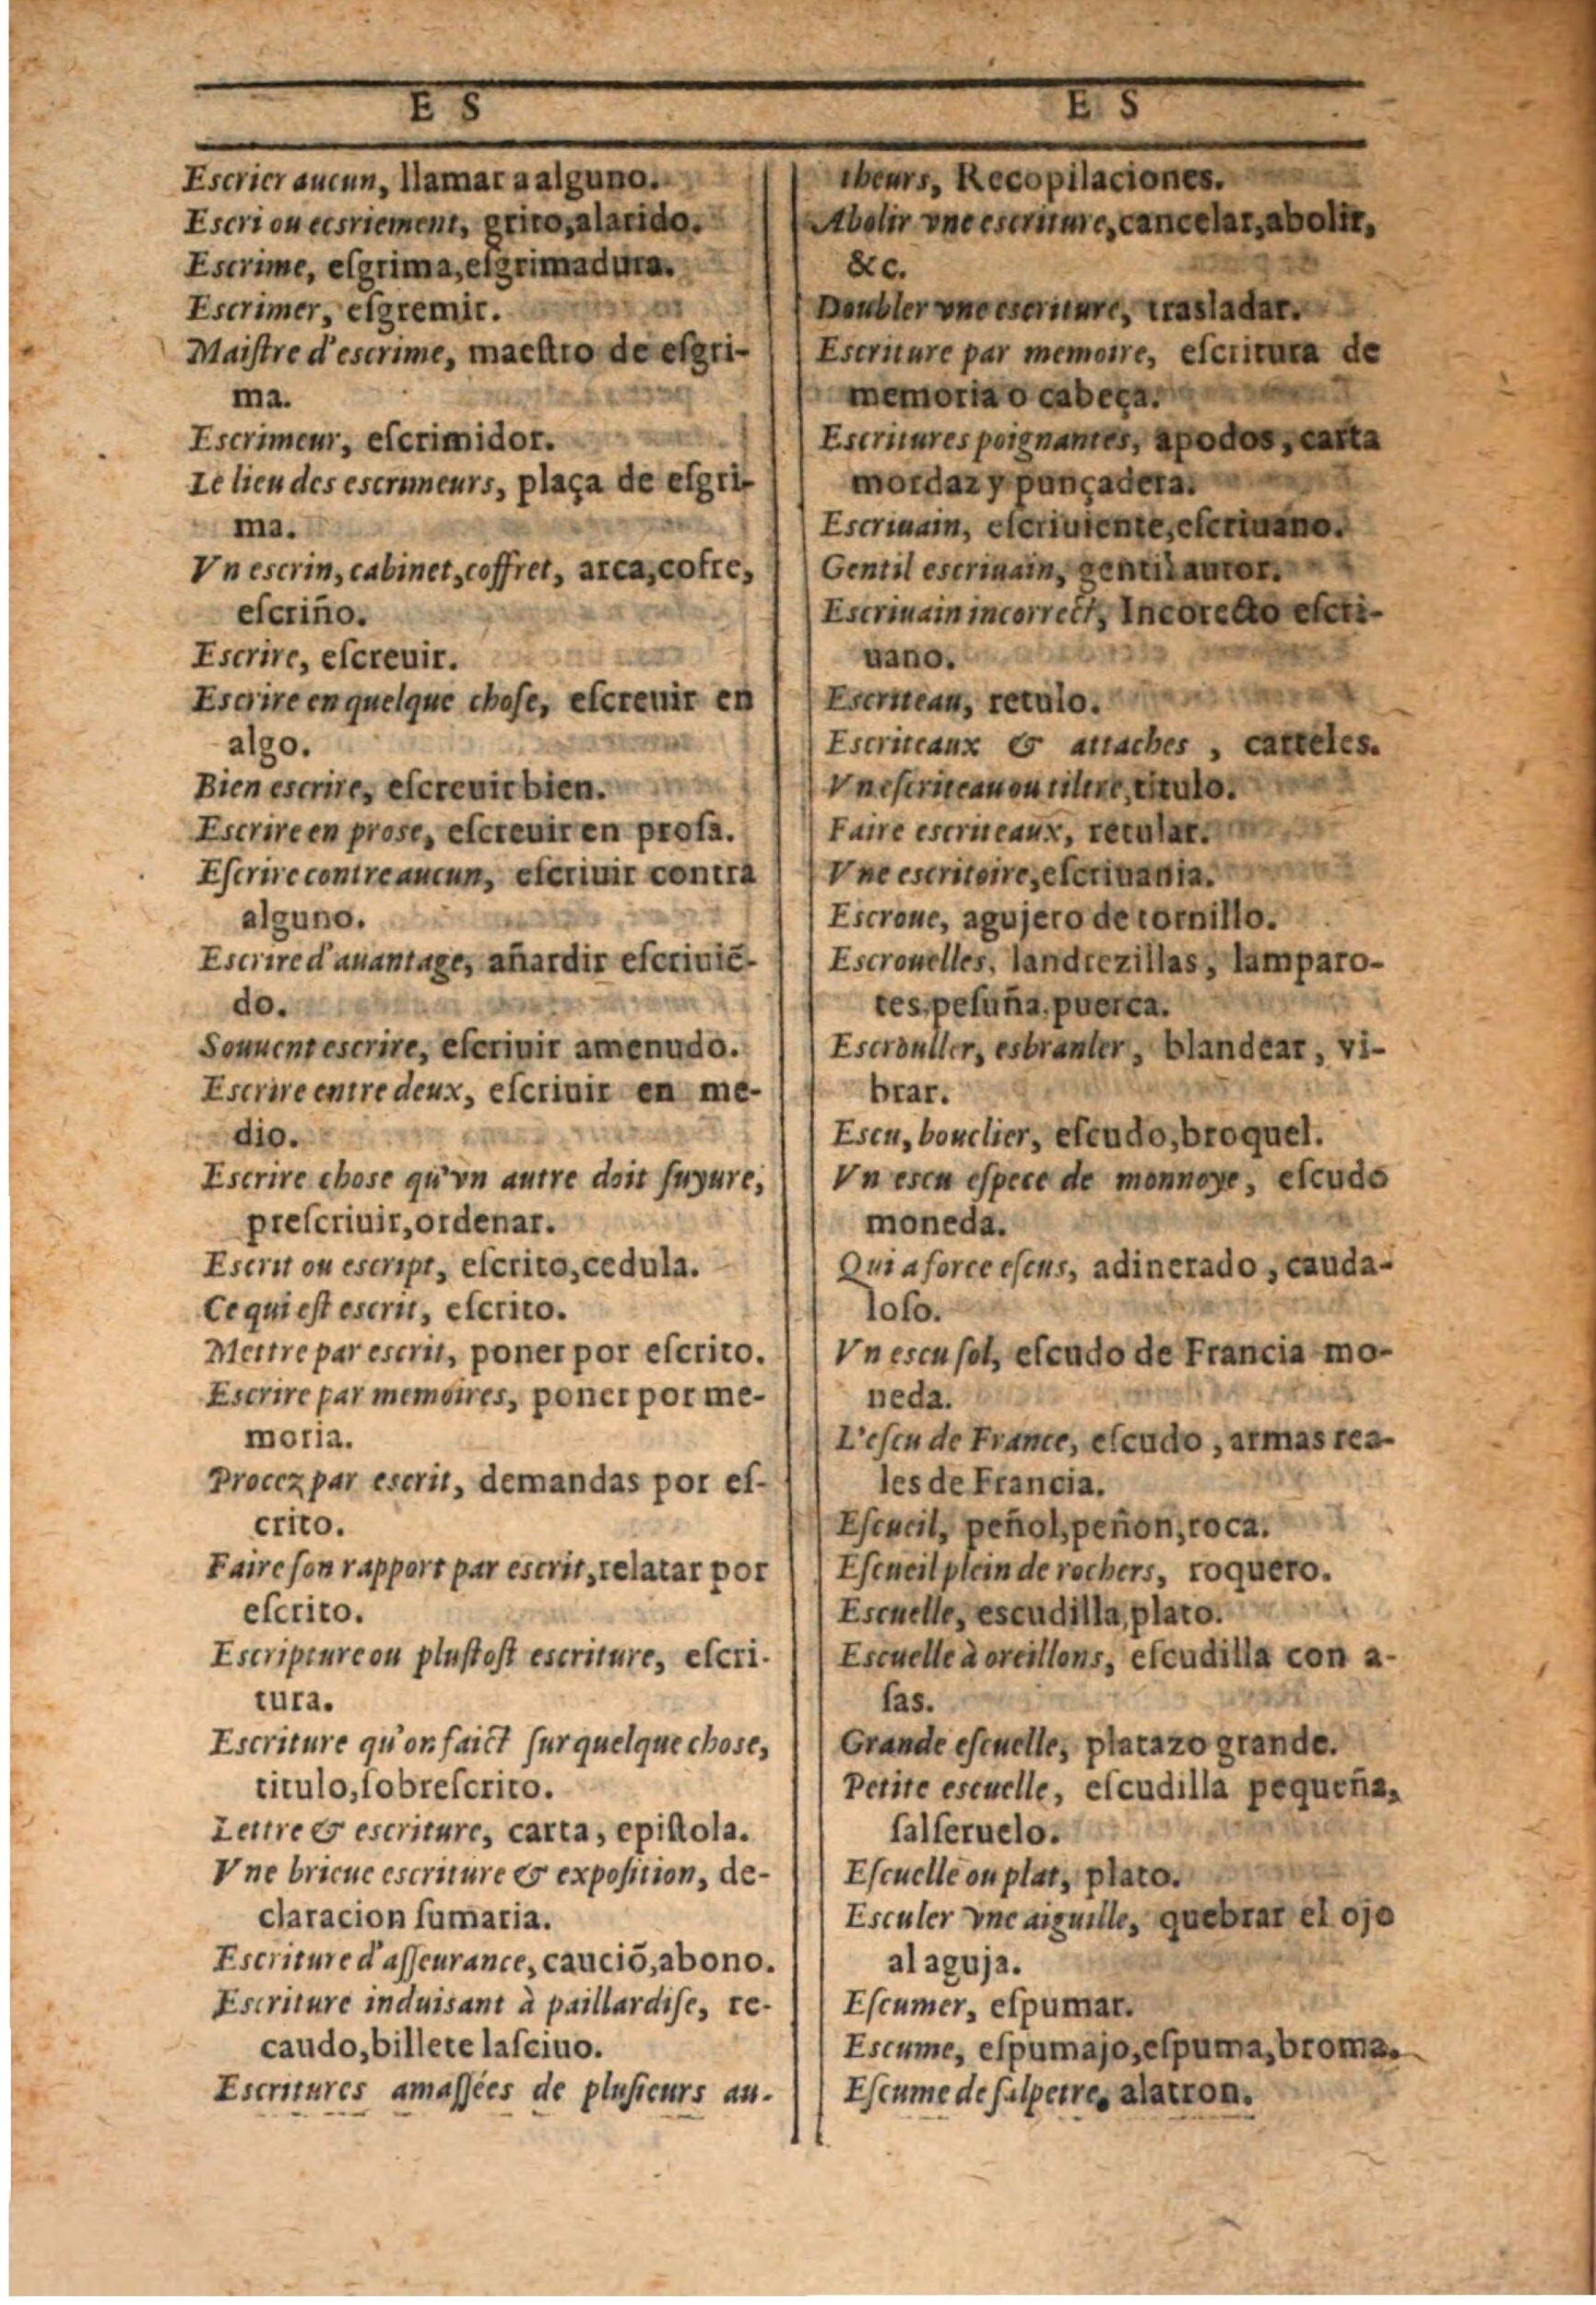 E S
Escrier aucun, llamar a alguno.
Escri ou ecsriement, grito, alarido.
Escrime, eſgrima, eſgrimadura.
Escrimer, eſgremir.
Maiſtre d'escrime, maeſtro de eſgri-
ma.
Escrimeur, eſcrimidor.
Le lieu des escrimeurs, plaça de eſgri-
ma.
Vn escrin, cabinet, coffret, arca, cofre,
eſcriño.
Escrire, eſcreuir.
Escrire en quelque choſe, eſcreuir en
algo.
Bien escrire, eſcreuir bien.
Escrire en prose, eſcreuir en proſa.
Eſcrire contre aucun, eſcriuir contra
alguno.
Escrire d'auantage, añardir eſcriuiẽ-
do.
Souuent escrire, eſcriuir amenudo.
Escrire entre deux, eſcriuir en me-
dio.
Escrire chose qu'vn autre doit ſuyure,
preſcriuir, ordenar.
Escrit ou escript, eſcrito, cedula.
Ce qui eſt escrit, eſcrito.
Mettre par escrit, poner por eſcrito.
Escrire par memoires, poner por me-
moria.
Procez par escrit, demandas por eſ-
crito.
Faire ſon rapport par escrit, relatar por
eſcrito.
Escripture ou pluſtoſt escriture, eſcri-
tura.
Escriture qu'on faict ſur quelque chose,
titulo, ſobreſcrito.
Lettre & escriture, carta, epiſtola.
Vne brieue escriture & expoſition, de-
claracion ſumaria.
Escriture d'aſſeurance, cauciõ, abono.
Escriture induisant à paillardiſe, re-
caudo, billete laſciuo.
Escritures amaſſées de pluſieurs au-
E S
theurs, Recopilaciones.
Abolir vne escriture, cancelar, abolir,
&c.
Doubler vne escriture, trasladar.
Escriture par memoire, eſcritura de
memoria o cabeça.
Escritures poignantes, apodos, carta
mordaz y punçadera.
Escriuain, eſcriuiente, eſcriuano.
Gentil escriuain, gentil autor.
Escriuain incorrect, Incorecto eſcri-
uano.
Escriteau, retulo.
Escriteaux & attaches, carteles.
Vn eſcriteau ou tiltre, titulo.
Faire escriteaux, retular.
Vne escritoire, eſcriuania.
Escroue, agujero de tornillo.
Escrouelles, landrezillas, lamparo-
tes, peſuña, puerca.
Escrouller, esbranler, blandear, vi-
brar.
Escu, bouclier, eſcudo, broquel.
Vn escu eſpece de monnoye, eſcudo
moneda.
Qui a force eſcus, adinerado, cauda-
loſo.
Vn escu ſol, eſcudo de Francia mo-
neda.
L'eſcu de France, eſcudo, armas rea-
les de Francia.
Eſcueil, peñol, peñon, roca.
Eſcueil plein de rochers, roquero.
Escuelle, escudilla, plato.
Escuelle à oreillons, eſcudilla con a-
ſas.
Grande eſcuelle, platazo grande.
Petite escuelle, eſcudilla pequeña,
ſalſeruelo.
Eſcuelle ou plat, plato.
Esculer vne aiguille, quebrar el ojo
al aguja.
Eſcumer, eſpumar.
Escume, eſpumajo, eſpuma, broma.
Eſcume de ſalpetre, alatron.